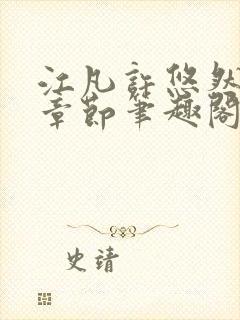 江凡許悠然
章節筆趣閣
史靖